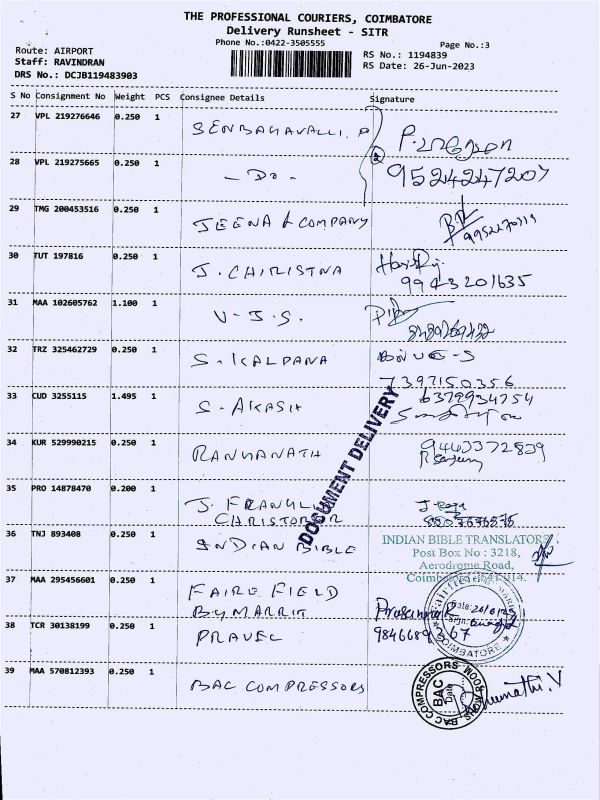 THE PROFESSIONAL COURIERS, COIMBATORE
Delivery Runsheet - SITR
Phone No.:0422-3505555
Page No.:3
Route: AIRPORT
Staff: RAVINDRAN
DRS No.: DCJB119483903
RS No.: 1194839
RS Date: 26-Jun-2023
S No Consignment No Weight PCS Consignee Details Signature
27 VPL 219276646 0.250 1 SENBAHAVALLI. P
28 VPL 219275665 0.250 1 - Do - 9524247207
29 TMG 200453516 0.250 1 JEENA & COMPANY
30 TUT 197816 0.250 1 J. CHIRISTNA
9943201635
31 MAA 102605762 1.100 1 V-J.S.
32 TRZ 325462729 0.250 1 S. KALPANA
7397150356
33 CUD 3255115 1.495 1 S. AKASH 6379934754
34 KUR 529990215 0.250 1 RANHANATH 9443372809
35 PRO 14878470 0.200 1 J. FRANKLI
CHRISTOBER
DOCUMENT DELIVERY
36 TNJ 893408 0.250 1 INDIAN BIBLE
INDIAN BIBLE TRANSLATORS
Post Box No : 3218,
Aerodrome Road,
37 MAA 295456601 0.250 1 FAIRE FIELD
BY MARRIT
Date: 26/6/23
Sign:
COIMBATORE
38 TCR 30138199 0.250 1 PRAVEL 9846689367
39 MAA 570812393 0.250 1 BAC COMPRESSORS
BAC COMPRESSORS SHOW ROOM
BAC
Date